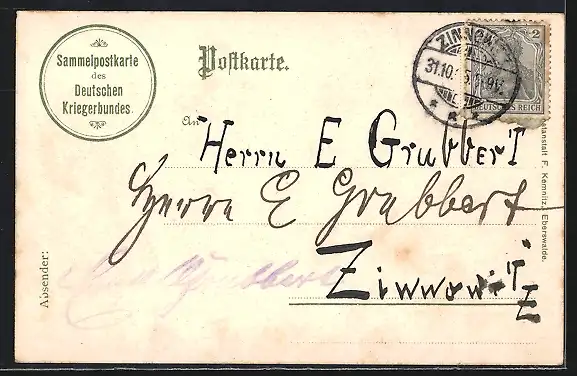 Sammelpostkarte
des
Deutschen
Kriegerbundes.
Postkarte.
ZINNOWITZ
31.10.
2
DEUTSCHES REICH
An
Herrn E Grubbert
Herrn E Grubbert
Zinnowitz
Absender:
F. Kemnitz, Eberswalde.